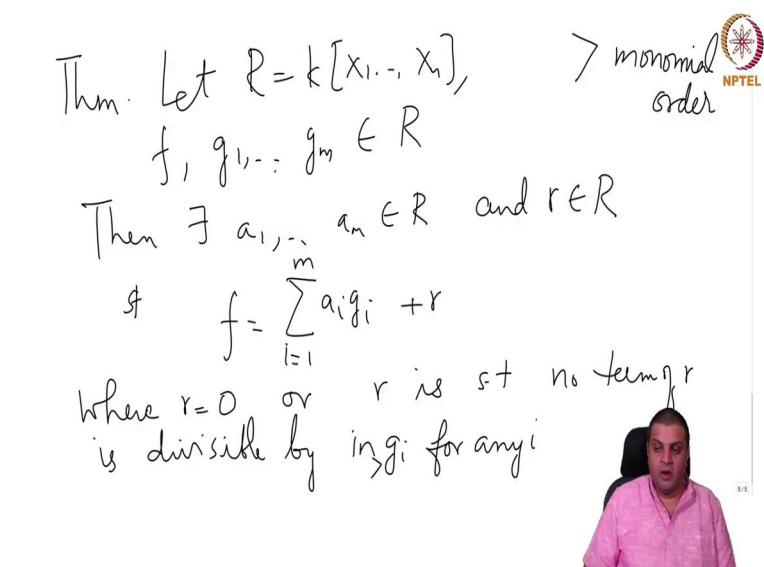 Thm. Let R = k[X₁..., Xₙ], > monomial order
f, g₁,... gₘ ∈ R
Then ∃ a₁,... aₘ ∈ R and r ∈ R
st f = ∑_{i=1}^{m} aᵢgᵢ + r
where r=0 or r is s.t no term of r
is divisible by in_> gᵢ for any i
NPTEL
5/5